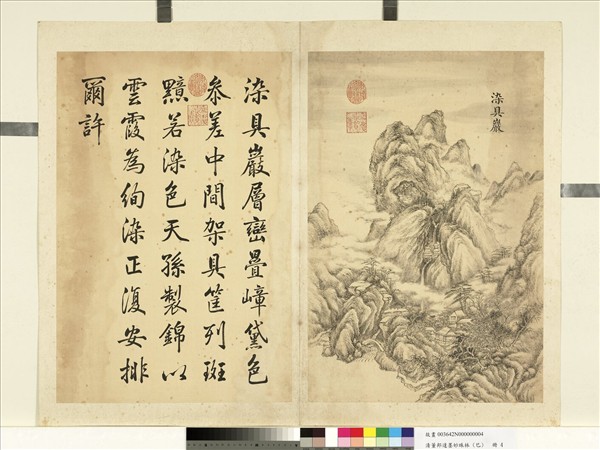 染具巖
染具巖層巒疊嶂黛色
參差中間架具筐列斑
黯若染色天孫製錦以
雲霞為絢染正復安排
爾許
故畫003642N000000004
清董邦達墨妙珠林（巳） 冊 4